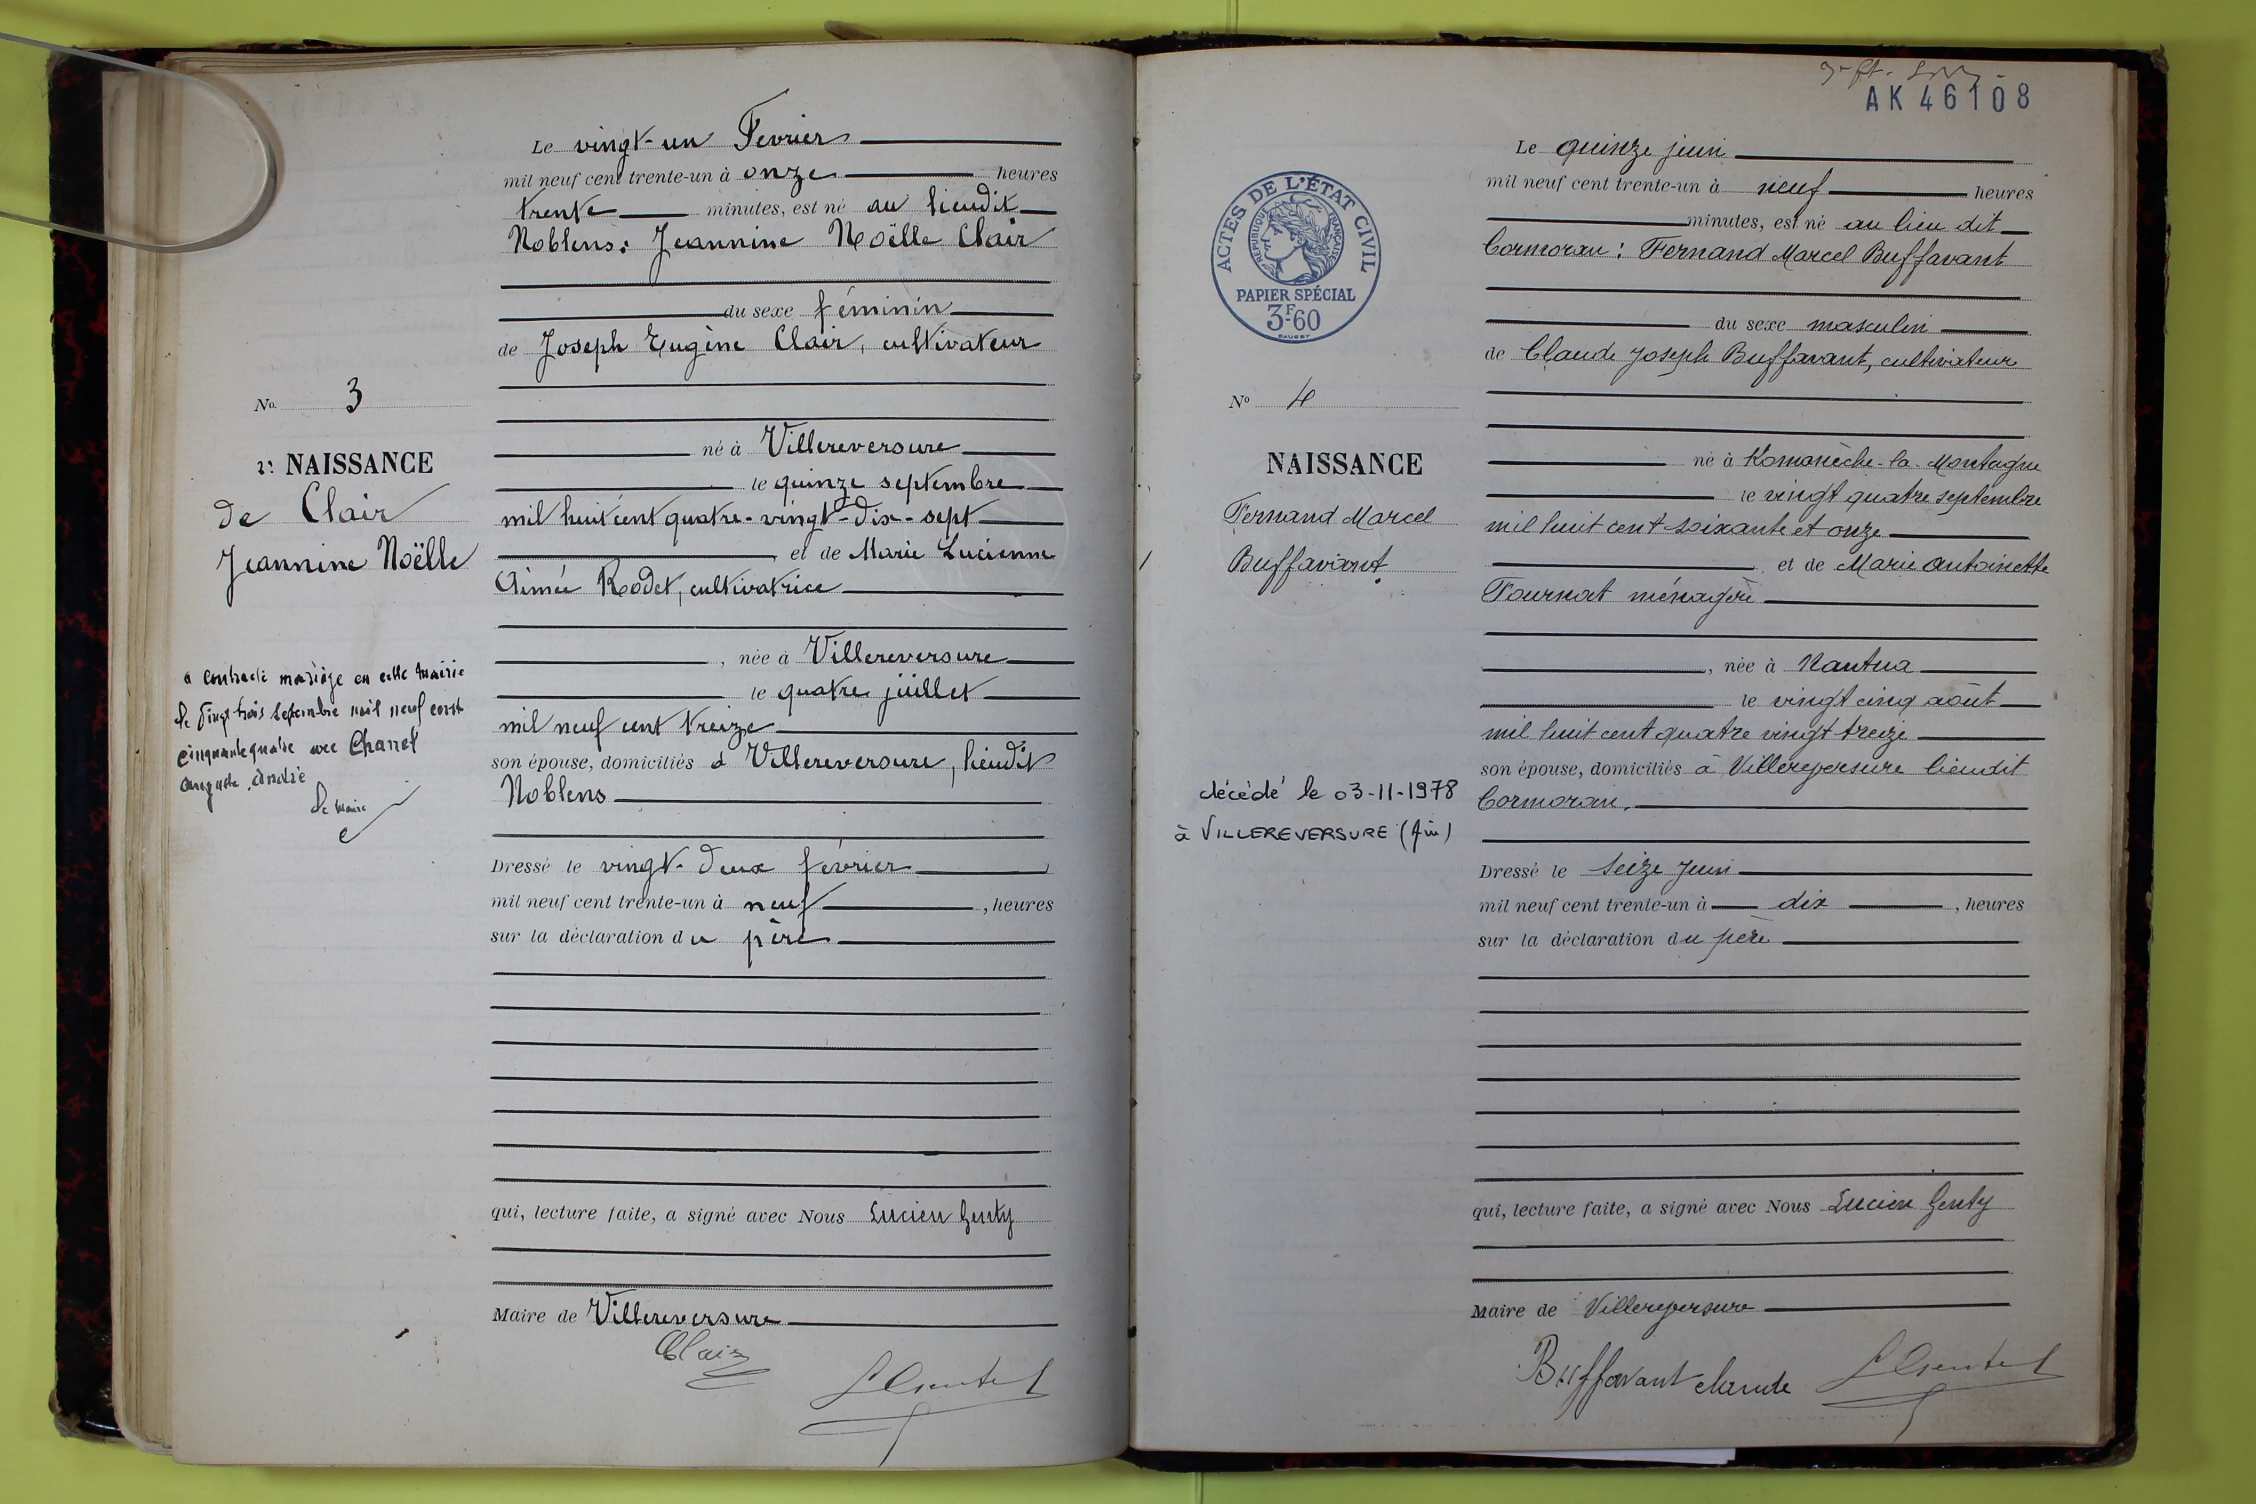 Le vingt-un Fevrier
mil neuf cent trente-un à onze heures
trente minutes, est né au lieudit
Noblens: Jeannine Noëlle Clair
du sexe féminin
de Joseph Eugène Clair, cultivateur
No 3
né à Villereversure
NAISSANCE
le quinze septembre
de Clair
mil huit cent quatre-vingt-dix-sept
Jeannine Noëlle
et de Marie Lucienne
Aimée Rodet, cultivatrice
, née à Villereversure
le quatre juillet
mil neuf cent treize
son épouse, domiciliés à Villereversure, lieudit
Noblens
a contracté mariage en cette mairie
le vingt trois septembre mil neuf cent
cinquante quatre avec Charret
Auguste André
Le Maire
Dressé le vingt-deux février
mil neuf cent trente-un à neuf , heures
sur la déclaration du père
qui, lecture faite, a signé avec Nous Lucien Genty
Maire de Villereversure
Clair
AK 46108
Le quinze juin
mil neuf cent trente-un à neuf heures
minutes, est né au lieu dit
Cormoran: Fernand Marcel Buffavant
du sexe masculin
de Claude Joseph Buffavant, cultivateur
ACTES DE L'ÉTAT CIVIL
RÉPUBLIQUE FRANÇAISE
PAPIER SPÉCIAL
3F60
No 4
né à Romanèche-la-Montagne
NAISSANCE
le vingt quatre septembre
Fernand Marcel
mil huit cent soixante et onze
Buffavant
et de Marie Antoinette
Tournat ménagère
, née à Nantua
le vingt cinq août
mil huit cent quatre vingt treize
son épouse, domiciliés à Villereversure lieudit
Cormoran.
décédé le 03-11-1978
à VILLEREVERSURE (Ain)
Dressé le seize Juin
mil neuf cent trente-un à dix , heures
sur la déclaration du père
qui, lecture faite, a signé avec Nous Lucien Genty
Maire de Villereversure
Buffavant claude